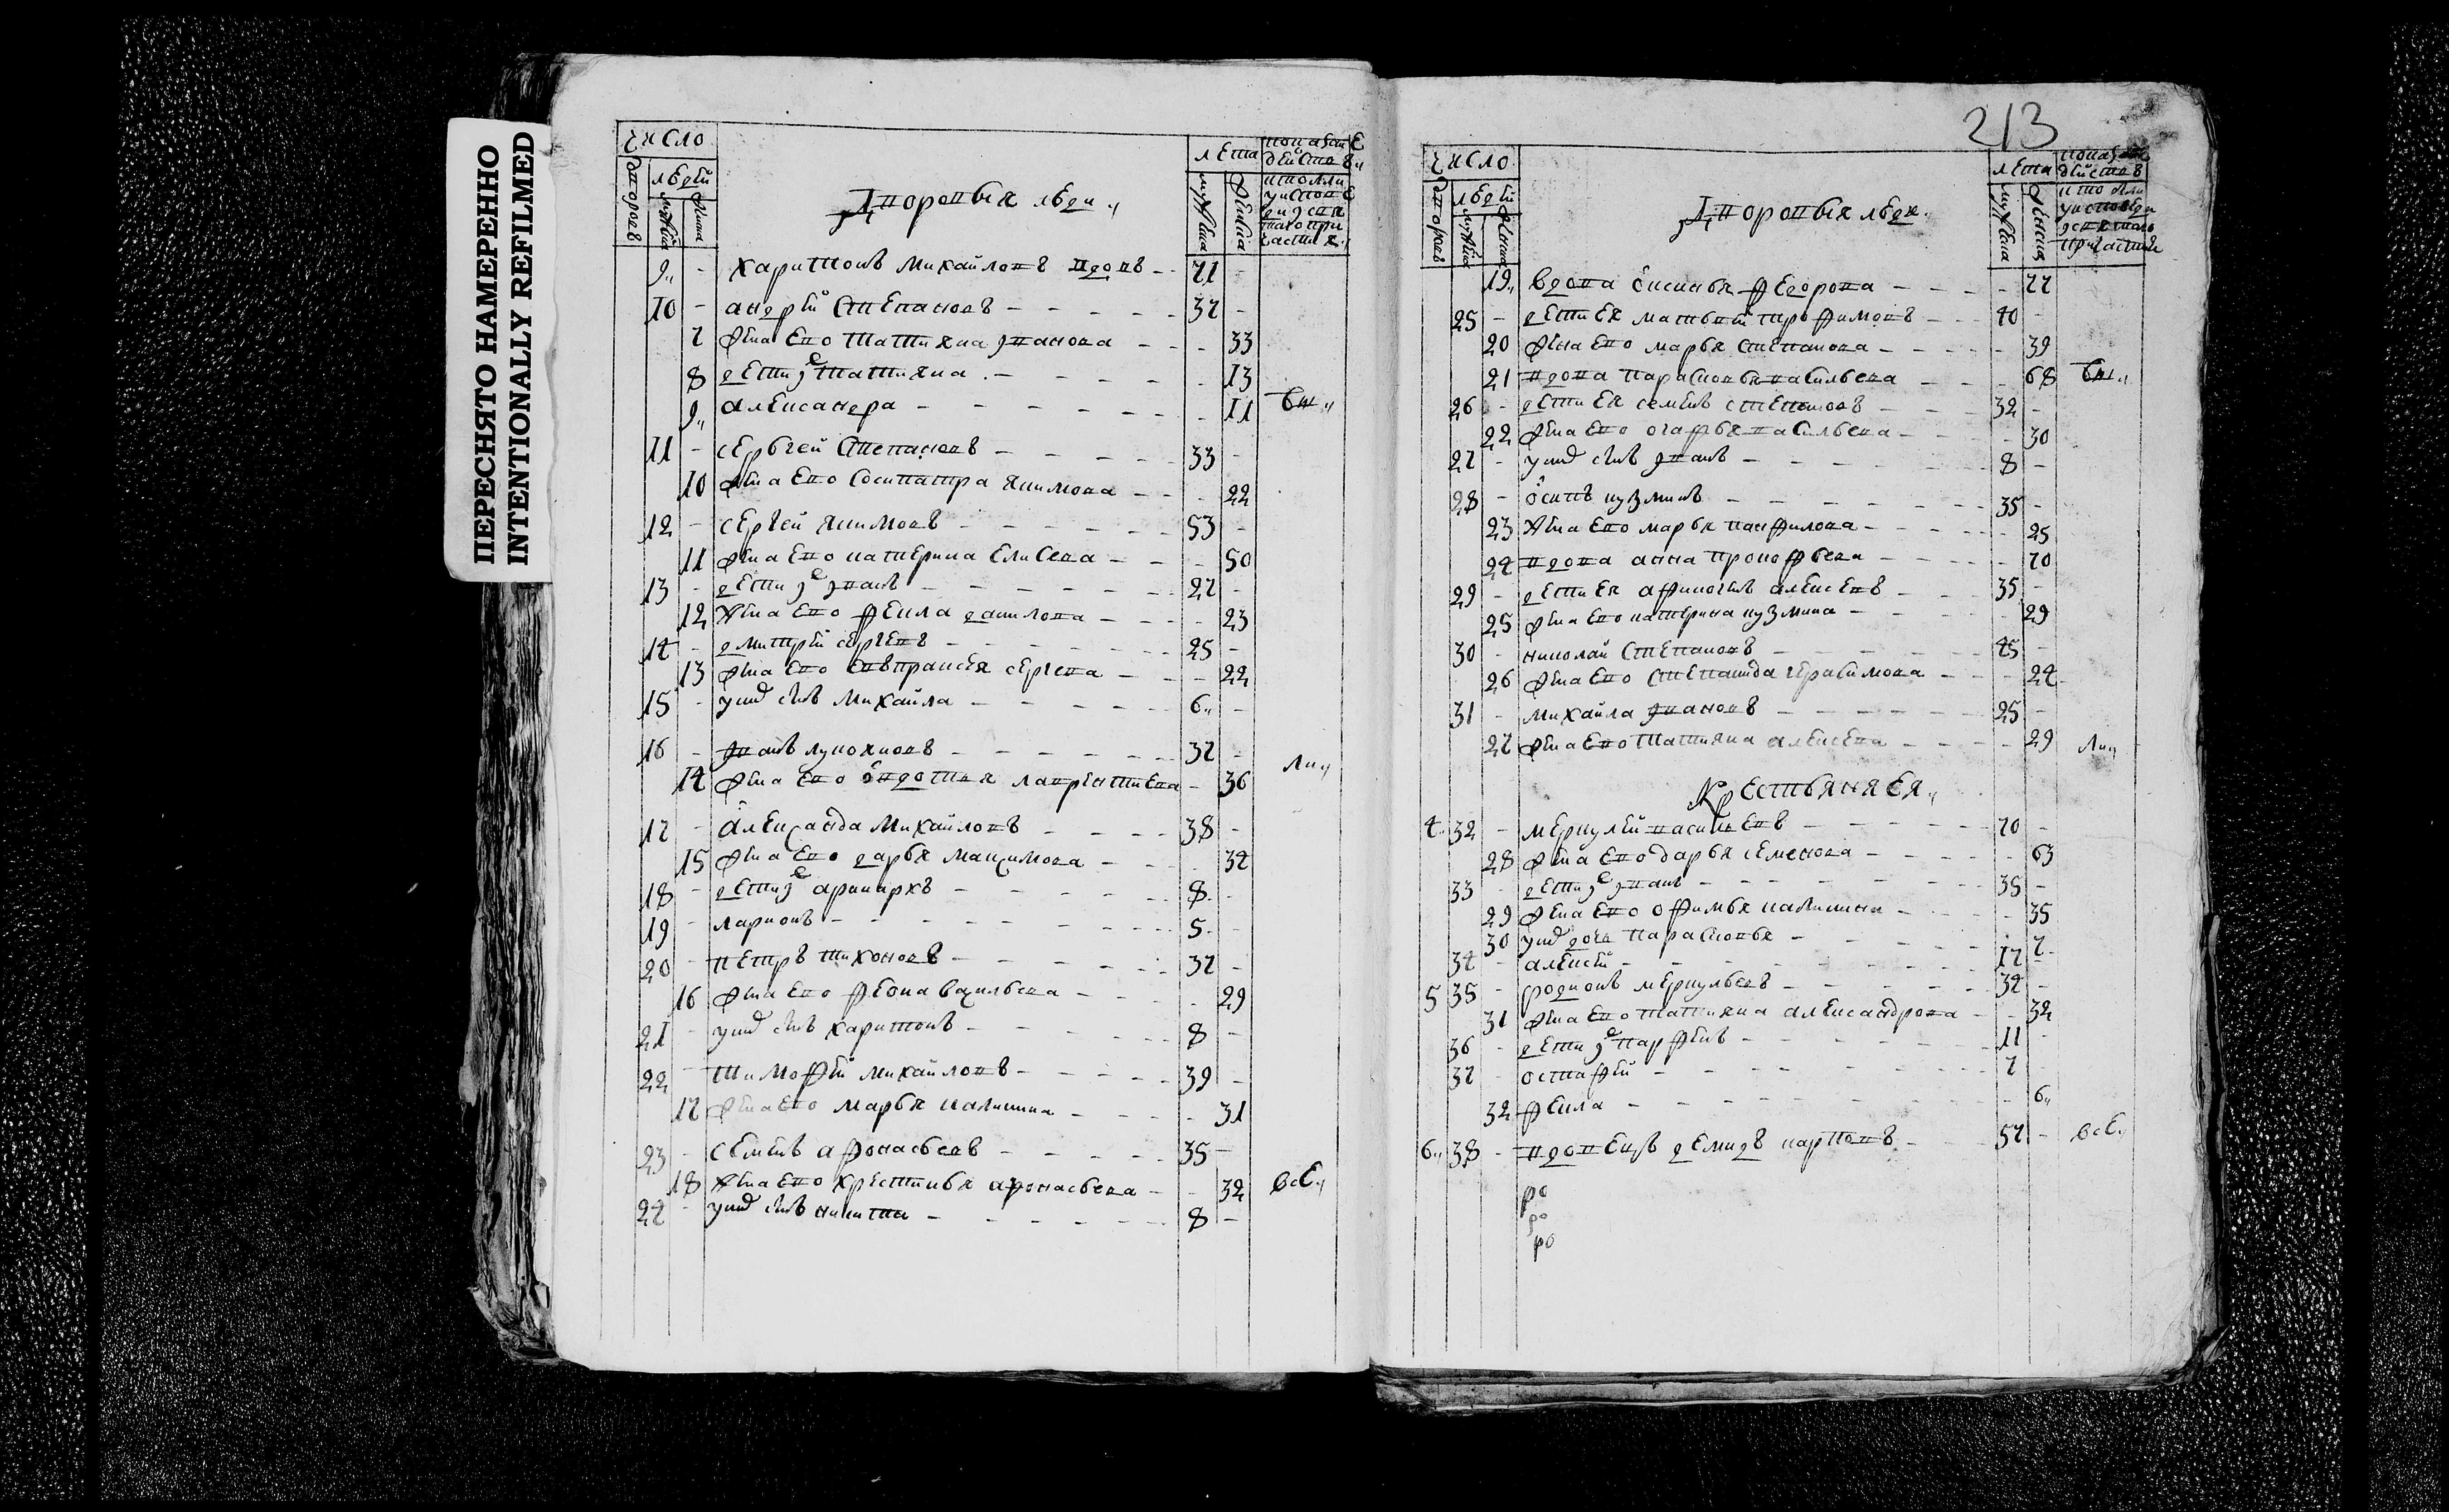 ПЕРЕСНЯТО НАМЕРЕННО
INTENTIONALLY REFILMED
213
число
дворовъ
людей
мужска
женска
Дворовыя люди
лета
мужска
женска
9 - Харитонъ Михайловъ вдовъ - 71 -
10 - андрей Степановъ - 37 -
7 жена ево Татияна Иванова - 33
8 дети их Татияна - 13
9 александра - 11
11 - сергей Степановъ - 33 -
10 жена ево Сосипатра Якимова - 22
12 - сергей Якимовъ - 53 -
11 жена ево катерина Елисева - 50
13 - дети их Иванъ - 27 -
12 жена ево Фекла данилова - 23
14 - дмитрей сергевъ - 25 -
13 жена ево Евпраксея сергева - 22
15 - у них сынъ Михайла - 6 -
16 - Иванъ лукояновъ - 37 -
14 жена ево овдотья лаврентиева - 36
17 - Александра Михайловъ - 38 -
15 жена ево дарья Максимова - 34
18 - дети их - 8 -
19 - ларионъ - 5 -
20 - петръ тихоновъ - 37 -
16 жена ево Федона Васильева - 29
21 - у них сынъ харитонъ - 8 -
22 - Тимофей михайловъ - 39 -
17 жена ево марья калинина - 31
23 - семенъ афонасьевъ - 35 -
18 жена ево Христинья афонасьева - 32 все
24 - у них сынъ никита - 8 -
число
дворовъ
людей
мужска
женска
Дворовыя люди
лета
мужска
женска
19 вдова Ксинья Федорова - 77
25 - дети ея матвей трофимовъ - 40 -
20 жена ево марья степанова - 39
21 вдова парасковья васильева - 68
26 - дети ея семенъ степановъ - 32 -
22 жена ево огафья васильева - 30
27 - у них сынъ Иванъ - 8 -
28 - осипъ кузминъ - 35 -
23 жена ево марья панфилова - 25
24 вдова анна прокофьева - 70
29 - дети ея афиногенъ алексевъ - 35 -
25 жена ево катерина кузмина - 29
30 - николай Степановъ - 45 -
26 жена ево Степанида герасимова - 24
31 - михайла Ивановъ - 25 -
27 жена ево Татияна алексева - 29
Крестьяня ея
4 32 - меркулей васильевъ - 70 -
28 жена ево дарья семенова - 63
33 - дети их Иванъ - 38 -
29 жена ево офимья калинина - 35
30 у них дочь парасковья - 7
34 - алексей - 17 -
5 35 - родионъ меркульевъ - 34 -
31 жена ево татияна александрова - 32
36 - дети их парфенъ - 11 -
37 - остафей - 7
32 Фекла - 6
6 38 - вдовецъ демидъ карповъ - 57 - все
ро
ро
ро